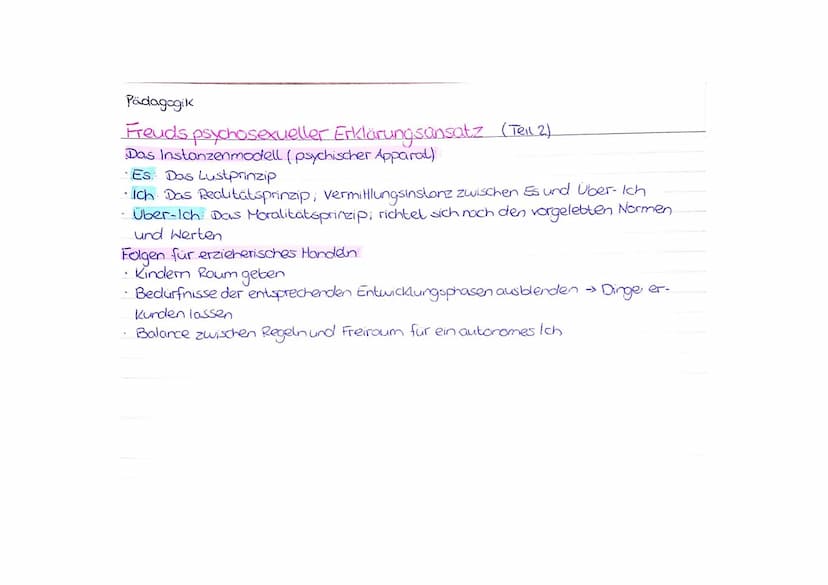 Pädagogik
Freuds psychosexueller Erklärungsansatz (Teil 2)
Das Instanzenmodell (psychischer Apparat)
· Es: Das Lustprinzip
· Ich: Das Realitätsprinzip; Vermittlungsinstanz zwischen Es und Über-Ich
· Über-Ich: Das Moralitätsprinzip; richtet sich nach den vorgelebten Normen
und Werten
Folgen für erzieherisches Handeln
· Kindern Raum geben
· Bedürfnisse der entsprechenden Entwicklungsphasen ausblenden → Dinge er-
kunden lassen
· Balance zwischen Regeln und Freiraum für ein autonomes Ich